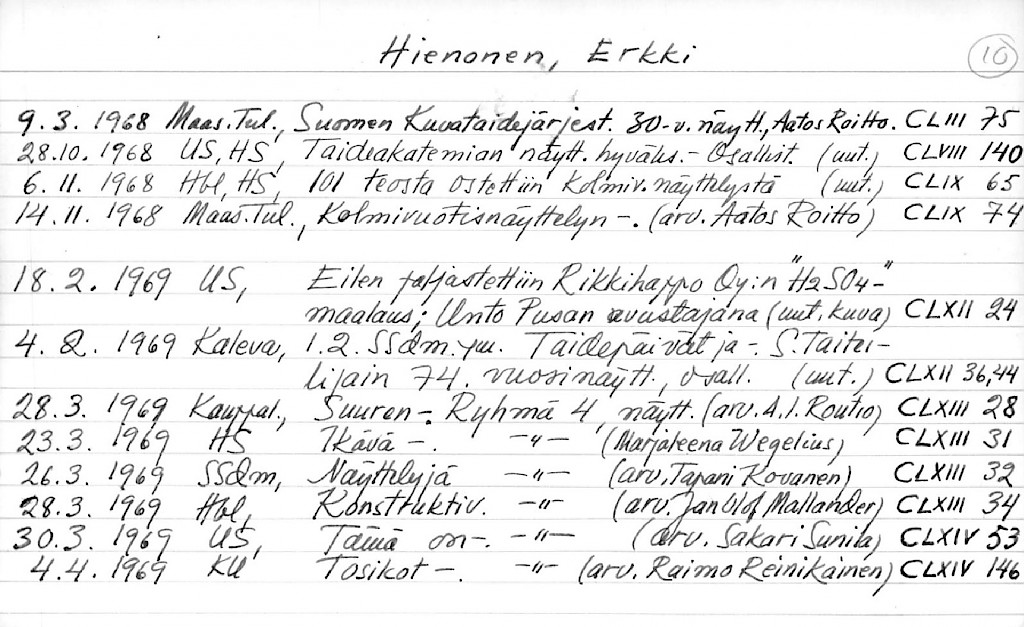 Hienonen, Erkki 10
9. 3. 1968 Maas.Tul., Suomen Kuvataidejärjest. 30-v. näytt., Aatos Roitto. CLIII 75
28.10. 1968 US, HS, Taideakatemian näytt. hyväks. - Osallist. (uut.) CLVIII 140
6. 11. 1968 Hbl, HS, 101 teosta ostettiin Kolmiv. näyttelystä (uut.) CLIX 65
14. 11. 1968 Maas.Tul., Kolmivuotisnäyttelyn -. (arv. Aatos Roitto) CLIX 74
18. 2. 1969 US, Eilen paljastettiin Rikkihappo Oy:n "H2SO4-"
maalaus; Unto Pusan avustajana (uut. kuva) CLXII 24
4. 2. 1969 Kaleva, 1.2. SSdm. ym. Taidepäivät ja -. S. Taitei-
lijain 74. vuosinäytt., osall. (uut.) CLXII 36,44
28. 3. 1969 Kauppal., Suuren -. Ryhmä 4, näytt. (arv. A.I. Routio) CLXIII 28
23. 3. 1969 HS Ikävä -. -"- (Marjateena Wegelius) CLXIII 31
26. 3. 1969 SSdm, Näyttelyjä -"- (arv. Tapani Kovanen) CLXIII 32
28. 3. 1969 Hbl, Konstruktiv. -"- (arv. Jan Olof Mallander) CLXIII 34
30. 3. 1969 US, Tämä on -. -"- (arv. Sakari Sunila) CLXIV 53
4. 4. 1969 KU Tosikot -. -"- (arv. Raimo Reinikainen) CLXIV 146